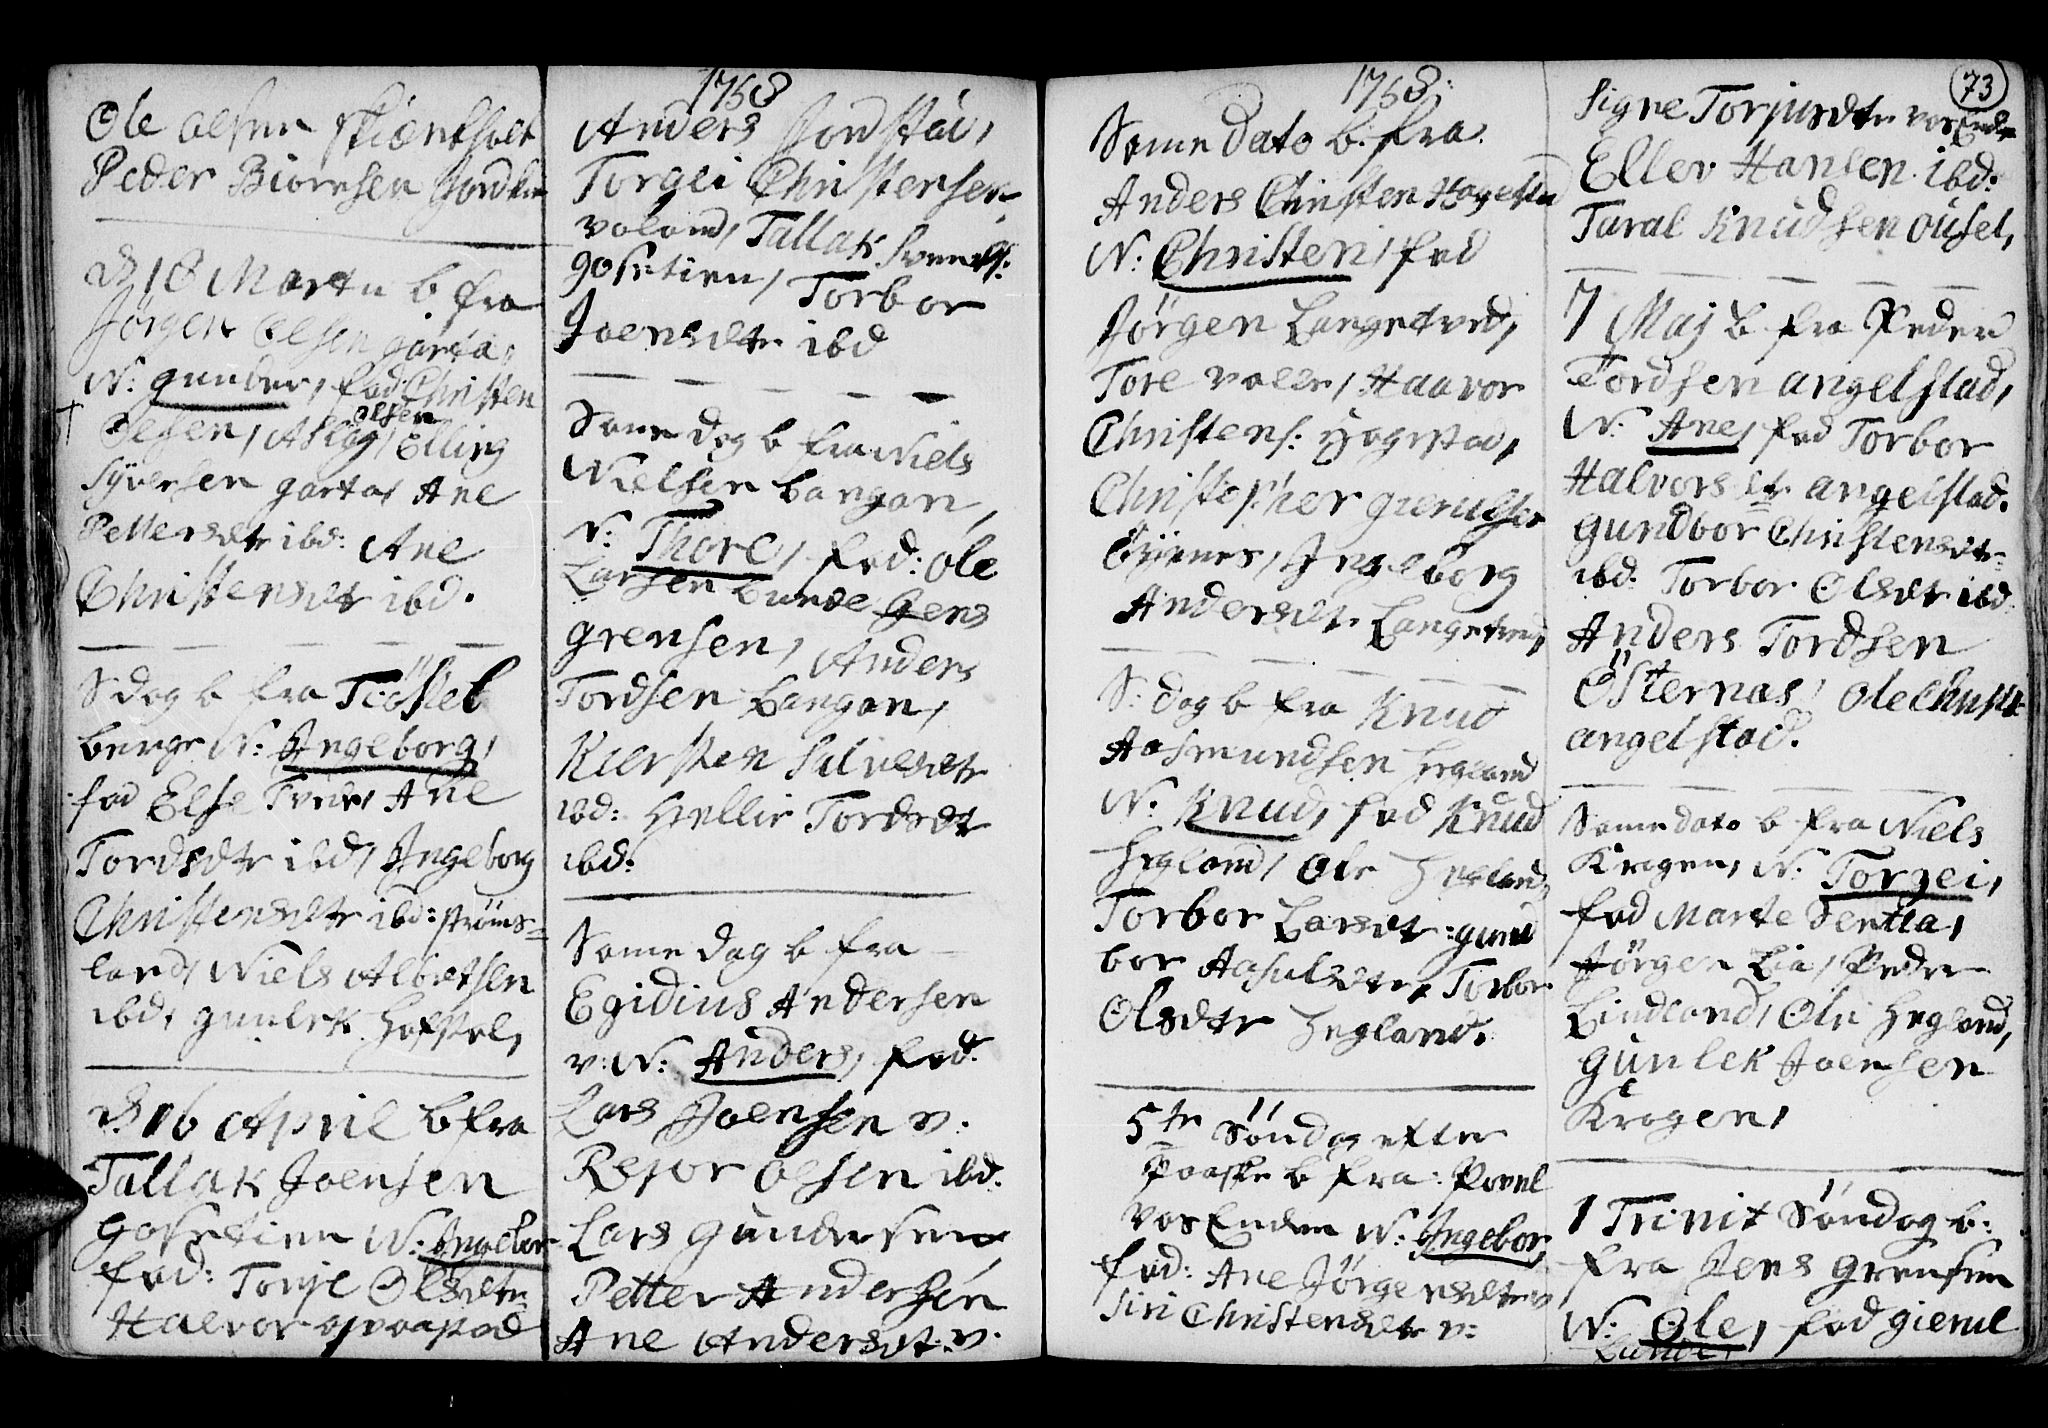 Ole olsen
Peder Biornsen
d 18 Martii b fra
Jörgen Olsen garta,
N: gunbor, fad: Christen
olsen
Olsen, Aslag, Elling
Syversen garta, Ane
Pettersdtr ibd: Ane
Christensdtr ibd.
S dag b fra
berge N: Ingeborg,
fad Else Tvede, Ane
Tordsdtr ibd, Ingeborg
Christensdtr ibd: ströms-
land, Niels Albretsen
ibd, gunlek
d 16 April b fra
Tallak Joensen
N: Ingebor
fad: Tonje Olsdtr
Halvor
1758
Anders
Torgei Christensen
voland, Tallak Svends:
Torbor
Joensdtr ibd
Same dag b fra Niels
Nielsen Langan,
N: Thore, fad: Ole
Larsen Lunde Jens
grensen, Anders
Tordsen Langan,
Kiersten
ibd: Hellie Tordsdtr
ibd:
Same dag b fra
Egidius Andersen
v: N: Anders, fad:
Lars Joensen v:
Rejor Olsen ibd.
Lars gundersen
Petter Andersen
Ane Andersdt: v:
1758:
Same dato b: fra
Anders Christen Hagestad
N: Christen, fad
Jörgen Langetved,
Tore valle, Haavor
Christens: Hagestad,
Christopher gierulsen
Ingeborg
Andersdtr Langetved,
S: dag b fra Knud
Aasmundsen Hegland
N: Knud, fad Knud
Hegland, Ole Hegland,
Torbor Larsdtr: gund
bor Aasulsdtr, Torbor
Olsdtr Hegland.
5te Söndag efter
Paaske b fra: Povel
Vos Enden N: Ingebor,
fad: Ane Jörgensdtr v
Siri Christensdtr v:
73
Signe Torjusdtr vos Enden
Ellev Hansen ibd:
Taral Knudsen ousel,
7 Maj b fra Peder
Tordsen angelstad,
N: Ane, fad Torbor
Halvorsdt. angelstad.
gundbor Christensdtr
ibd: Torbor Olsdtr ibd
Anders Tordsen
Östernas, Ole Christ:
angelstad.
Same dato b fra Niels
Kragen, N: Torgei,
fad Marte
Jörgen Lia, Peder
Lindland, Ole Hegland,
gunlek Joensen
Kragen,
1 Trinit Söndag b:
fra Jens grensen
N: Ole, fad gierul
Lunde,